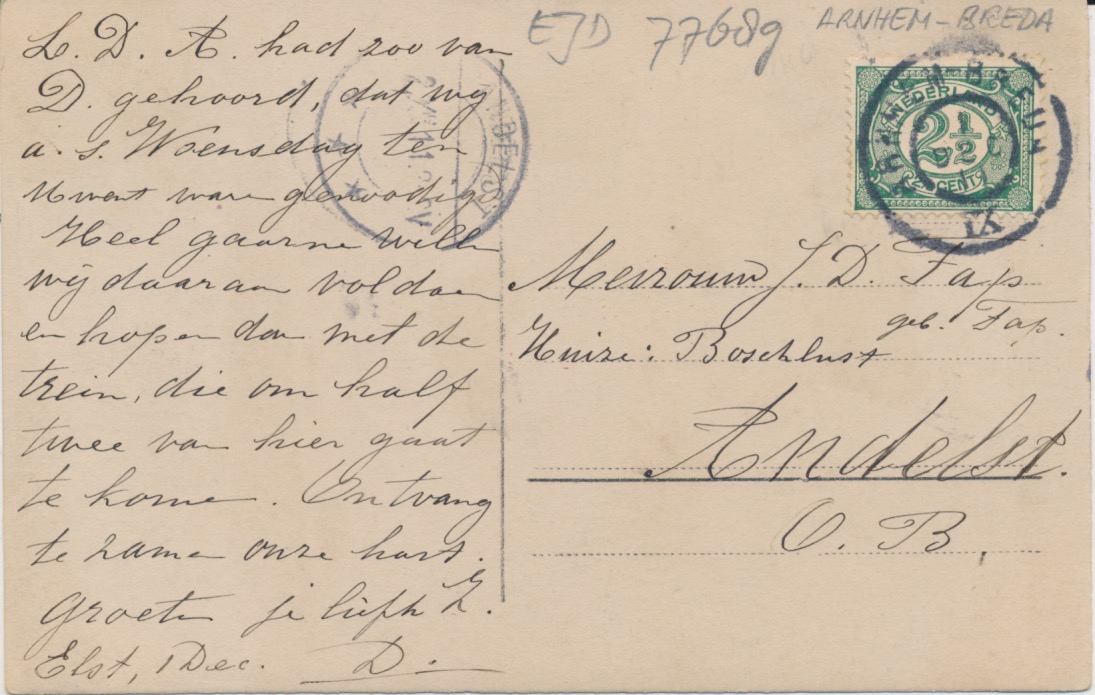 EJD 77689 ARNHEM-BREDA
NEDERLAND
2½
CENT
IX
L. D. A. had zoo van
D. gehoord, dat wij
a. s. Woensdag ten
Uwent ware genoodigd
Heel gaarne wille
wij daaraan voldoen
en hopen dan met de
trein, die om half
twee van hier gaat
te kome. Ontvang
te zamen onze hart.
groeten je liefh Z.
Elst, 1 Dec. D.
Mevrouw J. D. Tap
geb. Tap.
Huize: Boschlust
Andelst.
O. B.